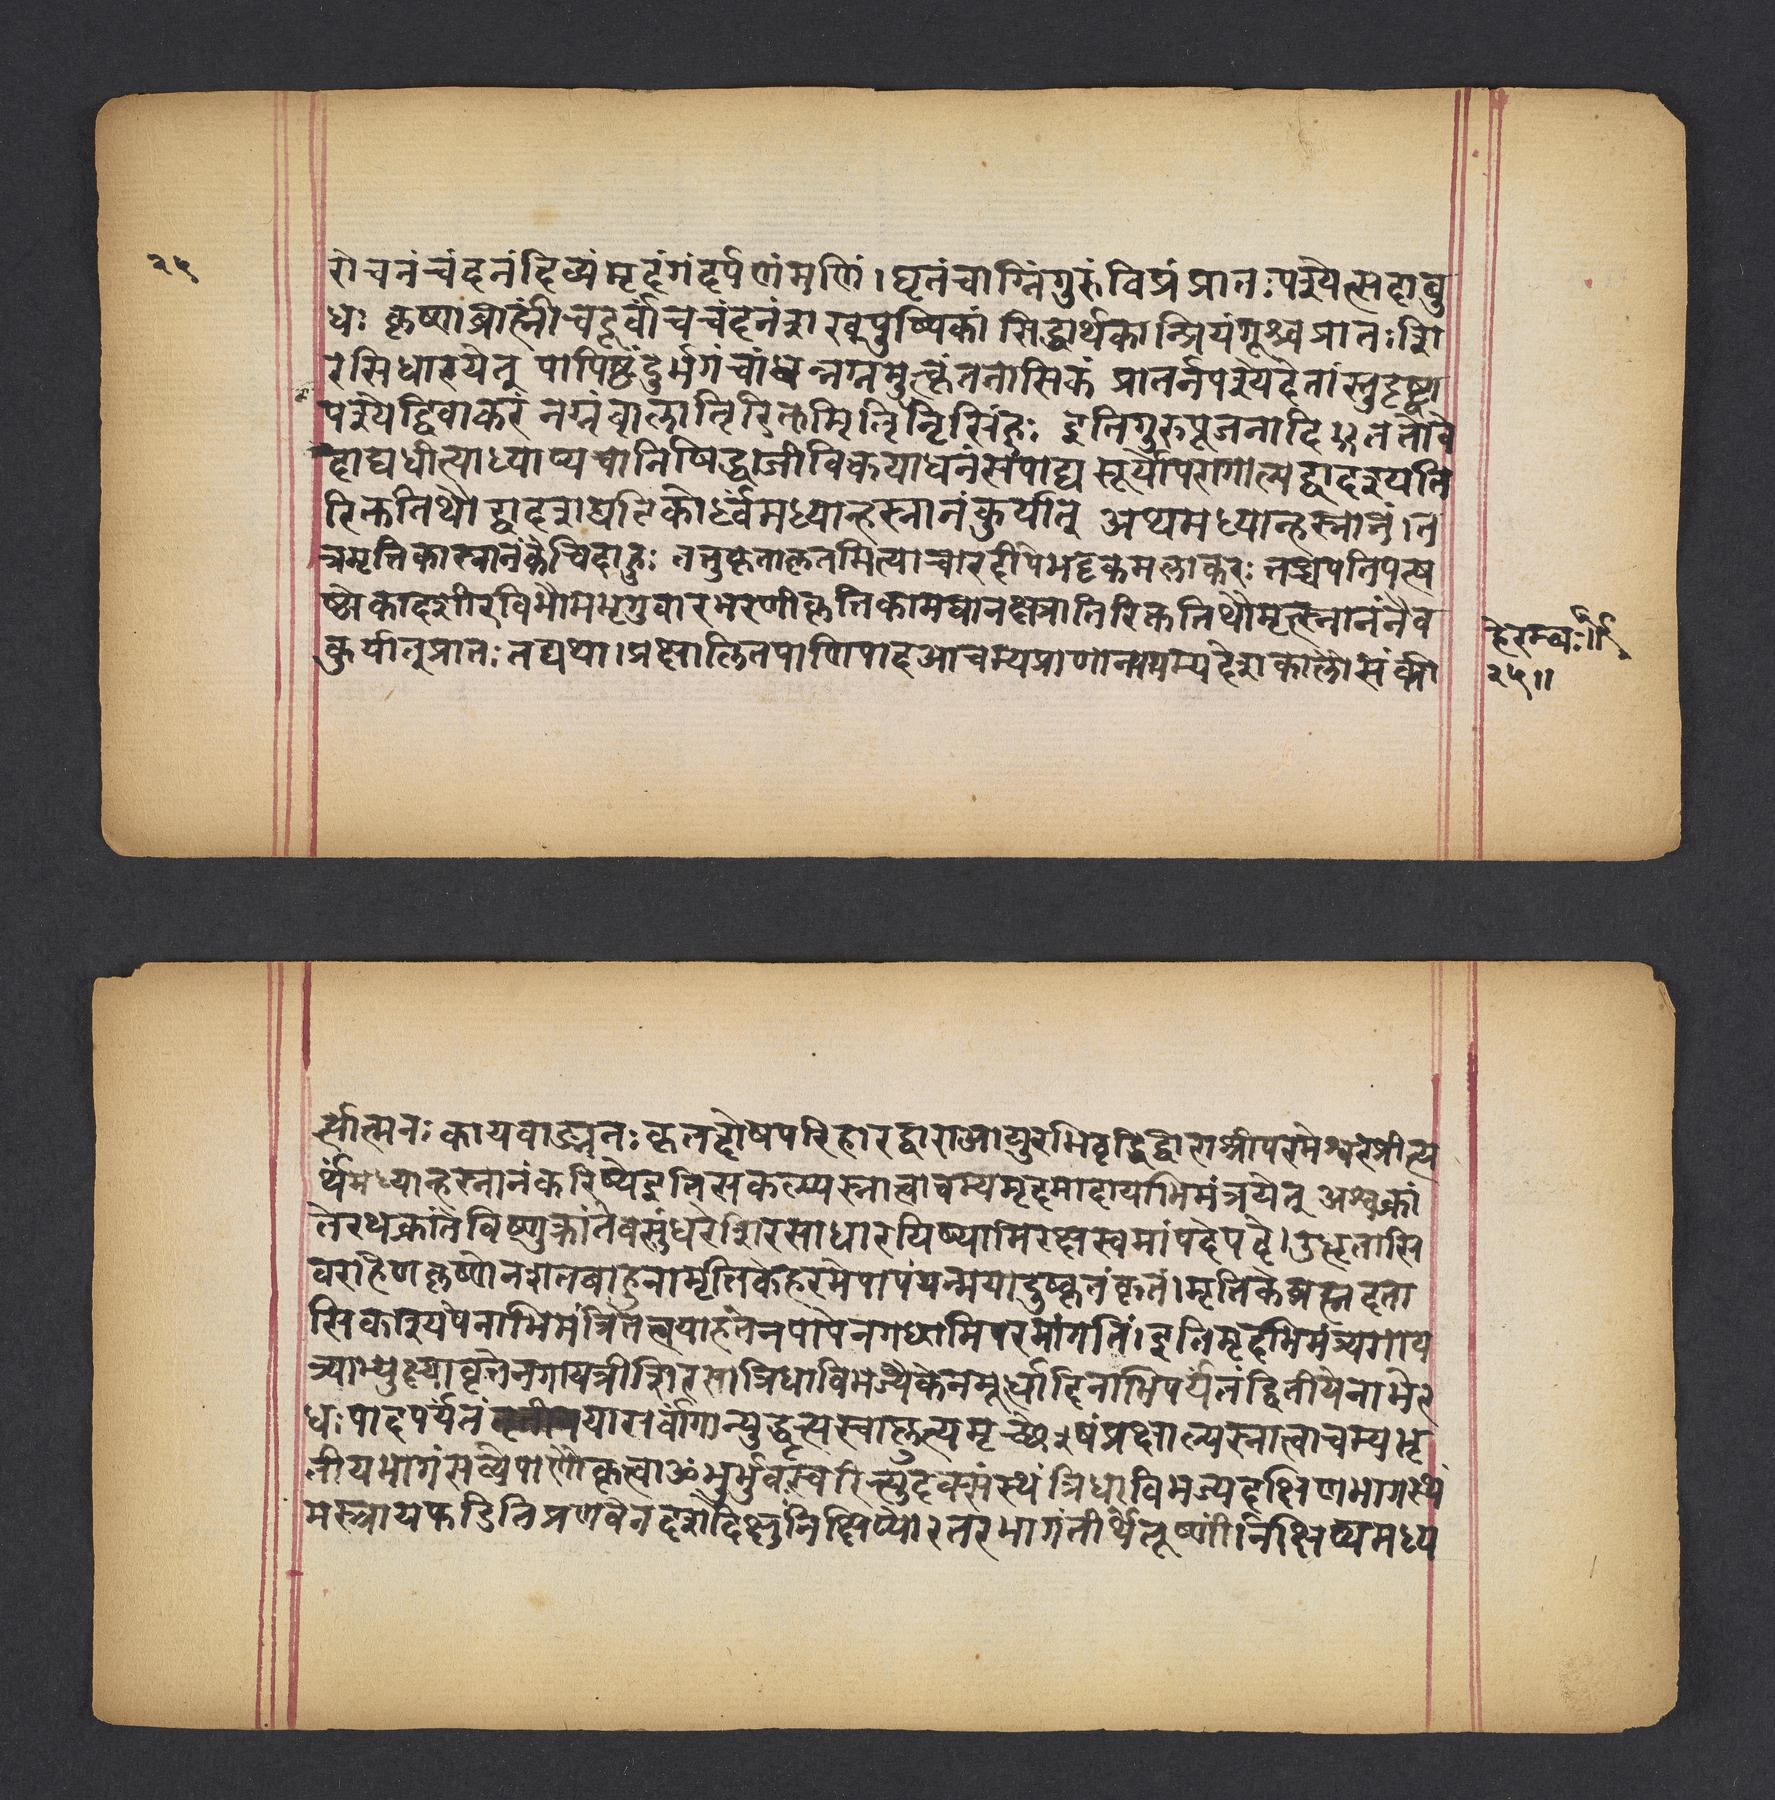 २५
रोचनंचंदनंदिव्यंमृदंगंदर्पणंमणिं।घृतंचाग्निंगुरुंविप्रंप्रातःपश्येत्सदाबु
धः कृष्णाब्राह्मींचदूर्वांचचंदनंशंखपुष्पिकां सिद्धार्थकान्प्रियंगूश्चप्रातःशि
रसिधारयेत् पापिष्ठंदुर्भगंचांधंनग्नमुत्कृंतनासिकं प्रातर्नपश्येदेतांस्तुदृष्ट्वा
पश्येद्दिवाकरं इतिगुरुपूजनादि ततोवे
दाद्यधीत्याध्याप्यचानिषिद्धाजीविकयाधनंसंपाद्य सूर्योपरागात्मद्वादश्यति
रिक्ततिथौद्वादशघटिकोर्ध्वंमध्यान्हस्नानंकुर्यात् अथमध्यान्हस्नानं।त
त्रमृत्तिकास्नानंकेचिदाहुः तत्तुकृताकृतमित्याचारदीपेभट्टकमलाकरः तच्चप्रतिपत्ष
ष्ठ्येकादशीरविभौमभृगुवारभरणीकृत्तिकामघानक्षत्रातिरिक्ततिथौमृत्स्नानंनैव
कुर्यात्प्रातः तद्यथा।प्रक्षालितपाणिपादआचम्यप्राणानायम्यदेशकालौसंकी
हेरम्बः॥
२५॥
र्त्यात्मनः कायवाङ्मनःकृतदोषपरिहारद्वाराआयुरभिवृद्धिद्वाराश्रीपरमेश्वरप्रीत्य
र्थंमध्यान्हस्नानंकरिष्येइतिसंकल्प्यस्नात्वाचम्यमृदमादायाभिमंत्रयेत् अश्वक्रां
तेरथक्रांतेविष्णुक्रांतेवसुंधरेशिरसाधारयिष्यामिरक्षस्वमांपदेपदे।उद्धृतासि
वराहेणकृष्णेनशतबाहुनामृत्तिकेहरमेपापंयन्मयादुष्कृतंकृतं।मृत्तिकेब्रह्मदत्ता
सिकाश्यपेनाभिमंत्रितात्वयाहतेनपापेनगछामिपरमांगतिं।इतिमृदमभिमंत्र्यगाय
त्र्याभ्युक्ष्यावृतेनगायत्रीशिरसात्रिधाविभज्यैकेनमूर्धादिनाभिपर्यंतंद्वितीयेनाभेर
धःपादपर्यंतं यासर्वांगान्युद्धृत्य प्रक्षाल्यस्नात्वाचम्यतृ
तीयभागंसव्येपाणौकृत्वाॐभूर्भुवःस्वरित्युदक्संस्थंत्रिधाविभज्यदक्षिणभागस्थं
मस्त्रायफडितिप्रणवेनदशदिक्षुनिक्षिप्योत्तरभागंतीर्थेतूष्णींनिक्षिप्यमध्य